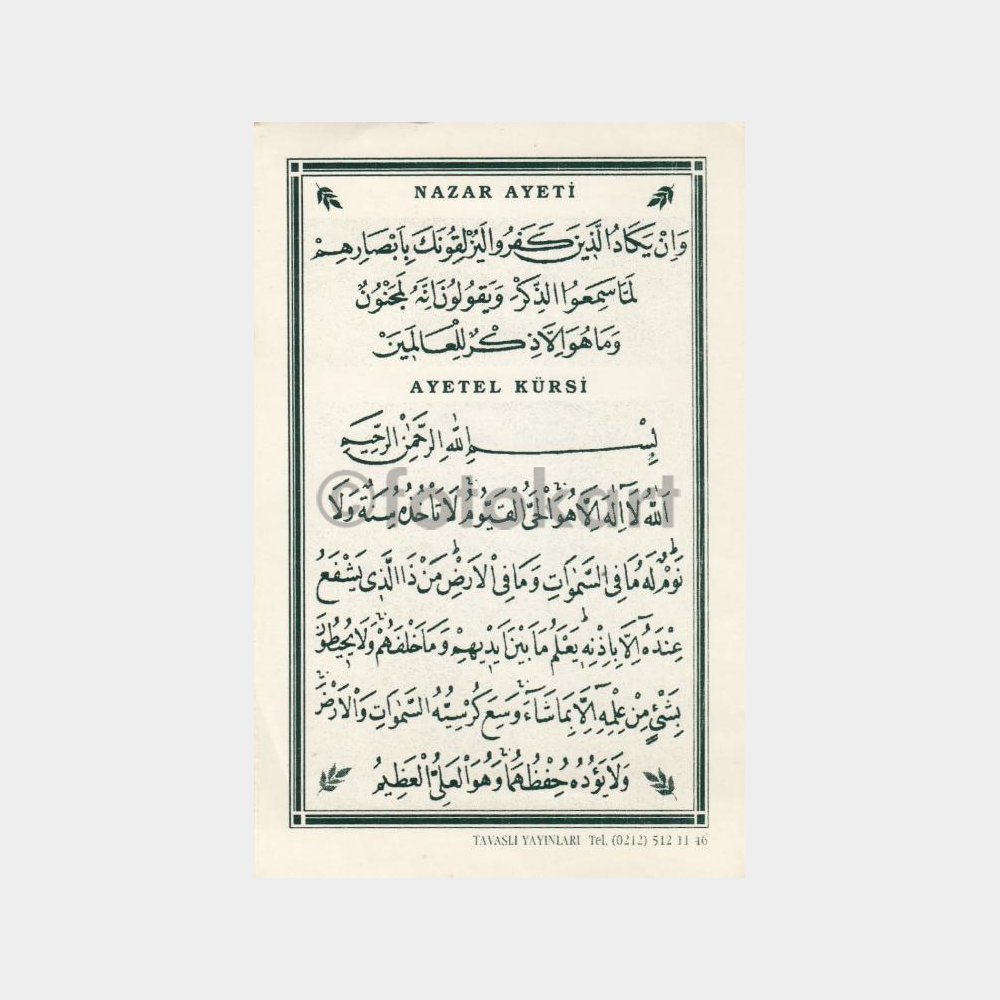 NAZAR AYETİ
وَاِنْ يَكَادُ الَّذ۪ينَ كَفَرُوا لَيُزْلِقُونَكَ بِاَبْصَارِهِمْ
لَمَّا سَمِعُوا الذِّكْرَ وَيَقُولُونَ اِنَّهُ لَمَجْنُونٌ
وَمَا هُوَ اِلَّا ذِكْرٌ لِلْعَالَم۪ينَ
AYETEL KÜRSİ
بِسْمِ اللّٰهِ الرَّحْمٰنِ الرَّح۪يمِ
اَللّٰهُ لَٓا اِلٰهَ اِلَّا هُوَ الْحَيُّ الْقَيُّومُ لَا تَأْخُذُهُ سِنَةٌ وَلَا
نَوْمٌ لَهُ مَا فِي السَّمٰوَاتِ وَمَا فِي الْاَرْضِ مَنْ ذَا الَّذ۪ي يَشْفَعُ
عِنْدَهُٓ اِلَّا بِاِذْنِه۪ يَعْلَمُ مَا بَيْنَ اَيْد۪يهِمْ وَمَا خَلْفَهُمْ وَلَا يُح۪يطُونَ
بِشَيْءٍ مِنْ عِلْمِه۪ٓ اِلَّا بِمَا شَٓاءَ وَسِعَ كُرْسِيُّهُ السَّمٰوَاتِ وَالْاَرْضَ
وَلَا يَؤُ۫دُهُ حِفْظُهُمَا وَهُوَ الْعَلِيُّ الْعَظ۪يمُ
©fotokart
TAVASLI YAYINLARI Tel. (0212) 512 11 46